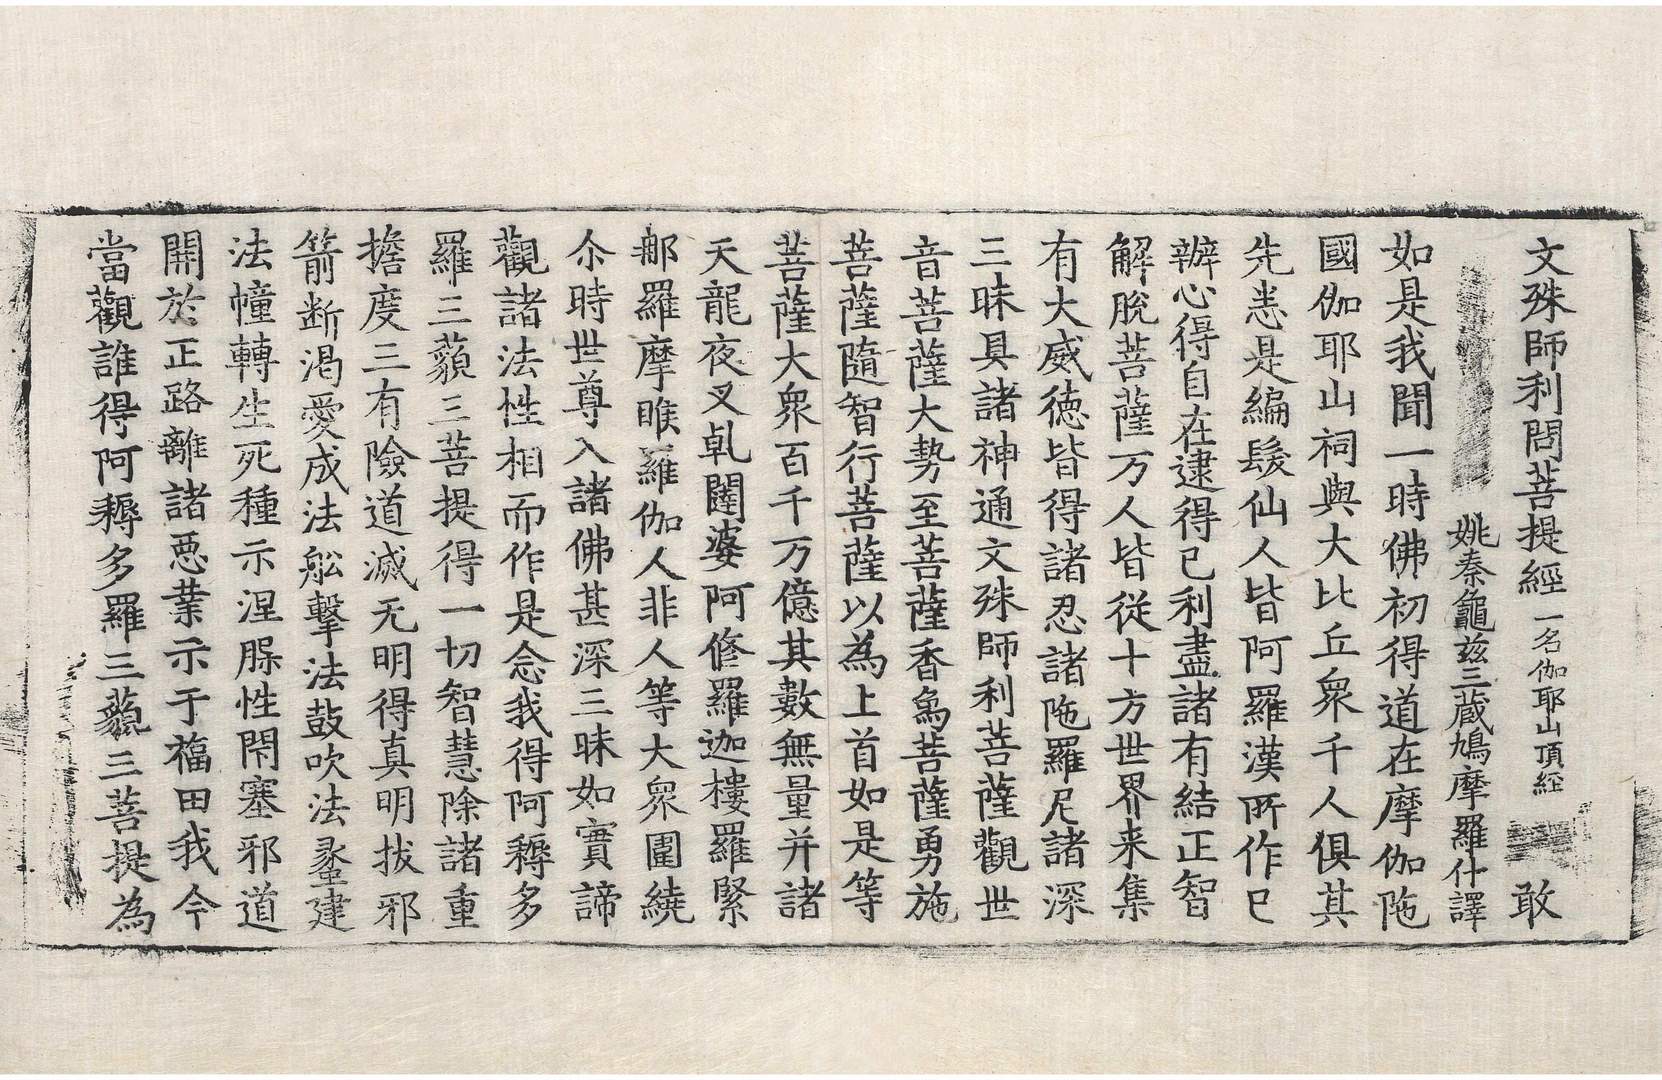 文殊師利問菩提經一名伽耶山頂經 敢
姚秦龜茲三蔵鳩摩羅什譯
如是我聞一時佛初得道在摩伽陁
國伽耶山祠與大比丘衆千人俱其
先悉是編髮仙人皆阿羅漢所作已
辦心得自在逮得己利盡諸有結正智
解脫菩薩万人皆從十方世界来集
有大威徳皆得諸忍諸陁羅尼諸深
三昧具諸神通文殊師利菩薩觀世
音菩薩大勢至菩薩香象菩薩勇施
菩薩隨智行菩薩以為上首如是等
菩薩大衆百千万億其數無量并諸
天龍夜叉乹闥婆阿修羅迦樓羅緊
那羅摩睺羅伽人非人等大衆圍繞
尒時世尊入諸佛甚深三昧如實諦
觀諸法性相而作是念我得阿耨多
羅三藐三菩提得一切智慧除諸重
擔度三有險道滅无明得真明拔邪
箭断渴愛成法舩擊法鼓吹法䗍建
法幢轉生死種示涅槃性閇塞邪道
開於正路離諸惡業示于福田我今
當觀誰得阿耨多羅三藐三菩提為